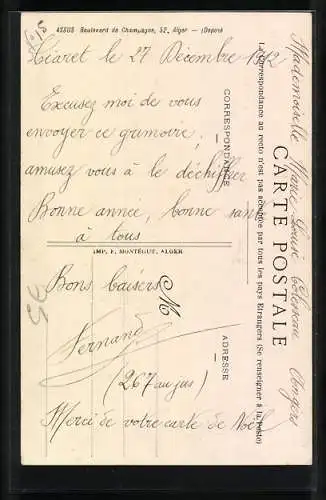 ASSUS Boulevard de Champagne, 52, Alger — (Déposé)
Tiaret le 27 Décembre 1912
Excusez moi de vous
envoyer ce grimoire;
amusez vous à le déchiffrer
Bonne année, bonne santé
à tous
IMP. F. MONTÉGUT, ALGER
Bons baisers
Fernand
(267 au jus)
Merci de votre carte de Noël
CORRESPONDANCE
M
ADRESSE
La Correspondance au recto n'est pas acceptée par tous les pays Étrangers (Se renseigner à la Poste)
CARTE POSTALE
Mademoiselle Marie Louise Angers